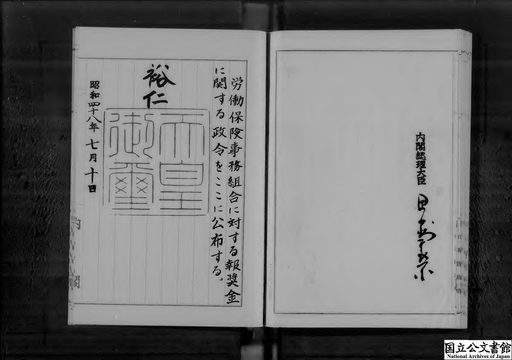 労働保険事務組合に対する報奨金
に関する政令をここに公布する。
裕仁
天皇
御璽
昭和四十八年七月十日
内閣総理大臣
田中角榮
国立公文書館
National Archives of Japan